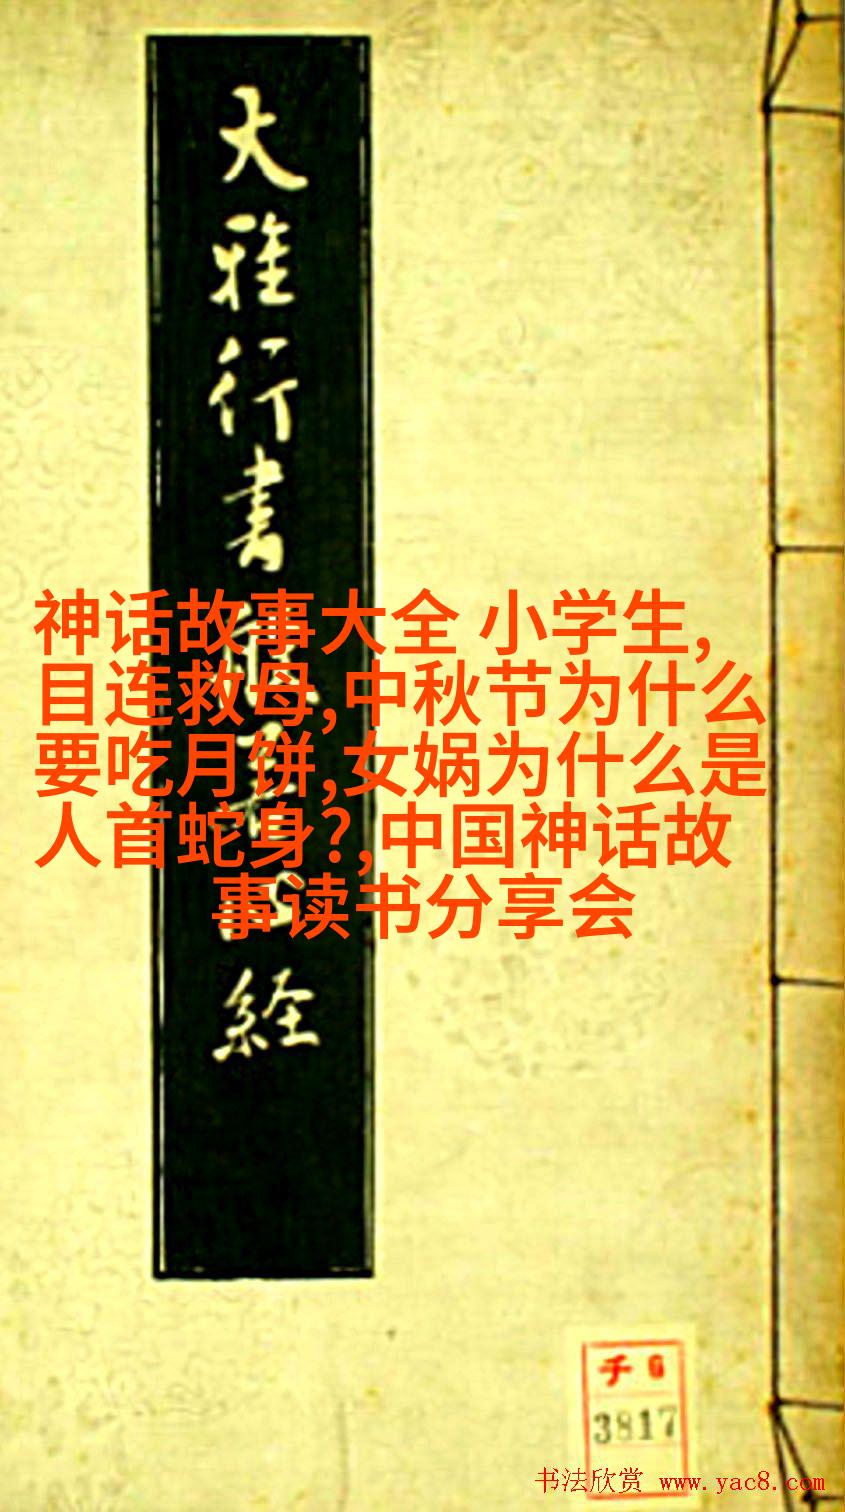 大雅行書
経
神话故事大全 小学生,
目连救母,中秋节为什么
要吃月饼,女娲为什么是
人首蛇身?,中国神话故
事读书分享会
千 G
3817
书法欣赏 www.yac8.com